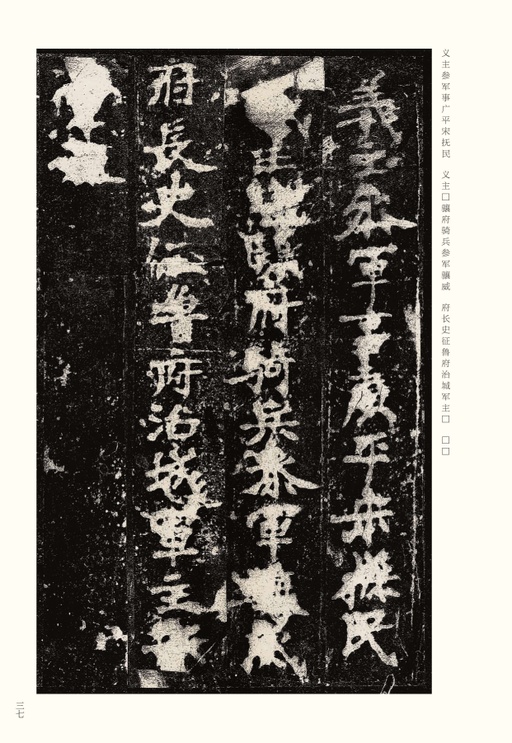 义主参军事广平宋抚民　义主□骧府骑兵参军骧威　府长史征鲁府治城军主□　□□
義主参軍事廣平宋撫民
義主□驤府騎兵参軍驤威
府長史征魯府治城軍主□
三七